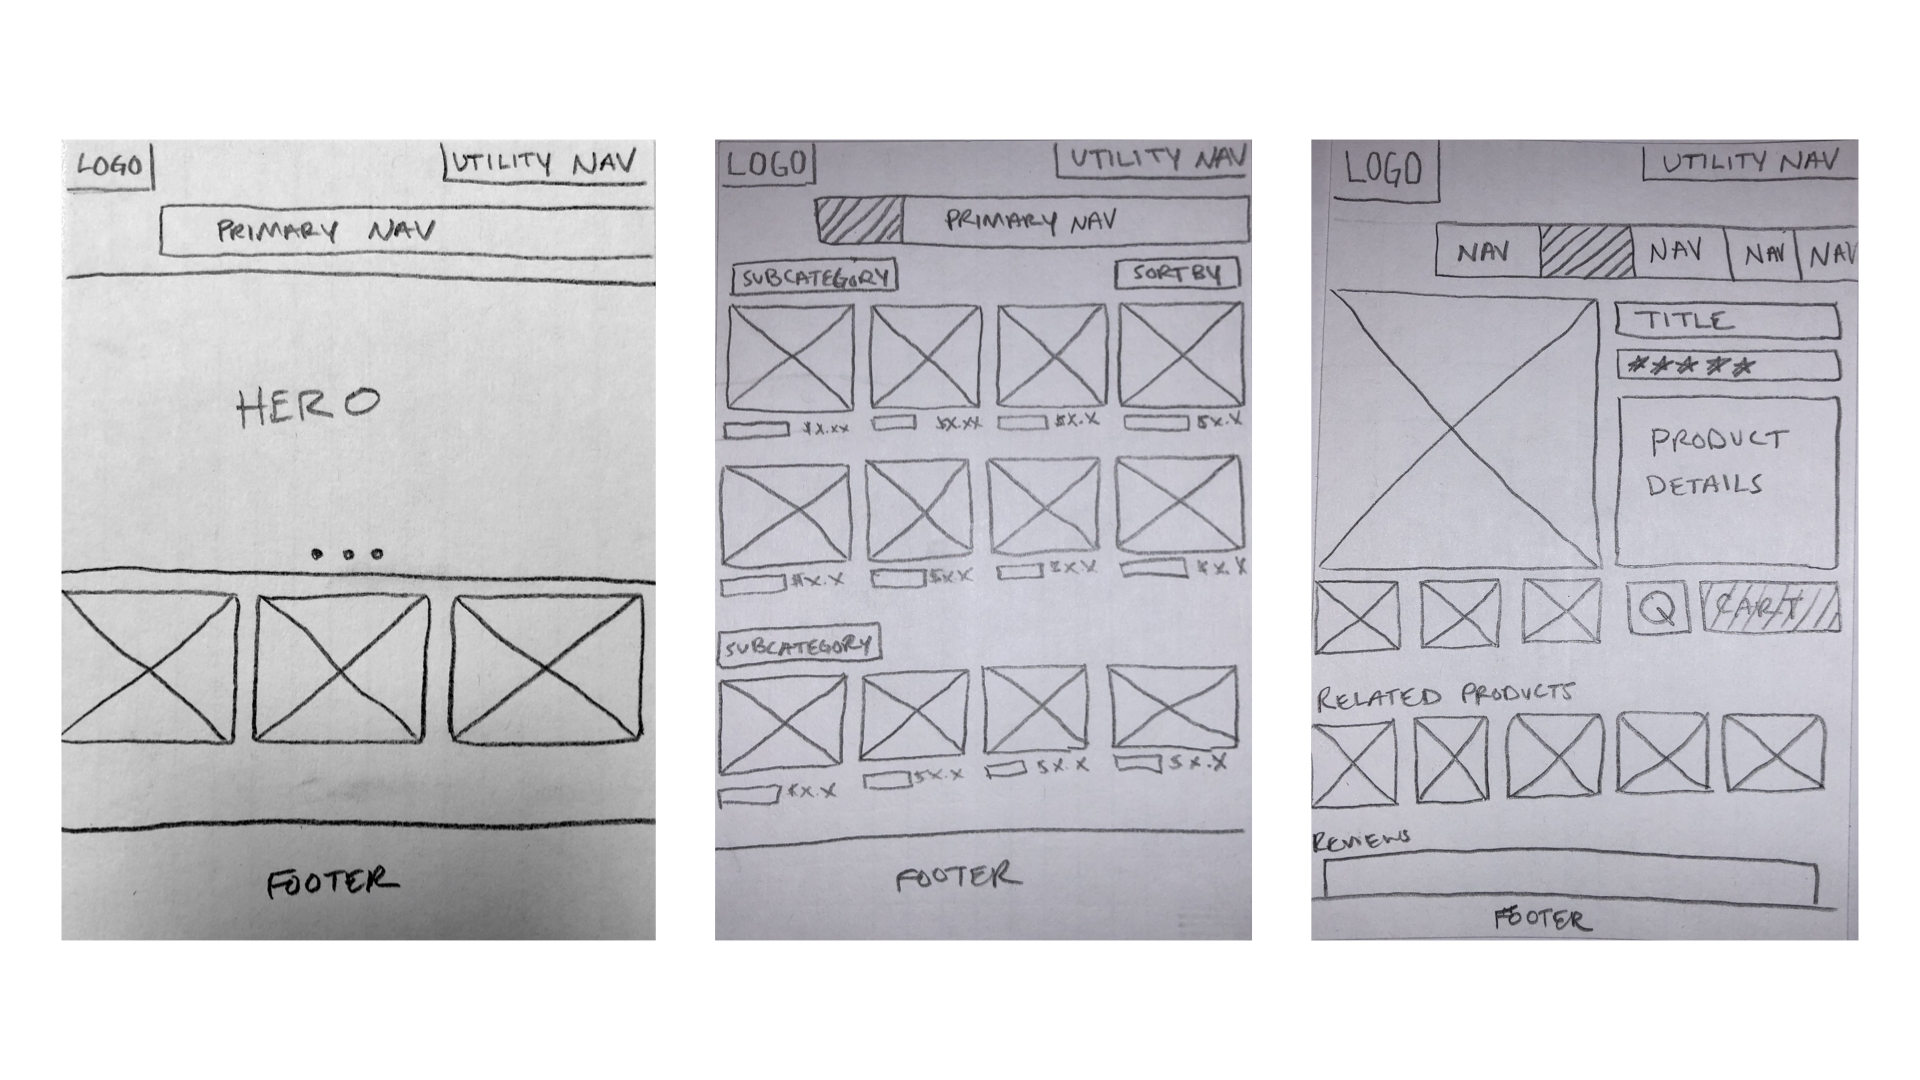 LOGO
UTILITY NAV
PRIMARY NAV
HERO
FOOTER
LOGO
UTILITY NAV
PRIMARY NAV
SUBCATEGORY
SORT BY
$X.XX $X.XX $X.X $X.X
$X.X $XX $X.X $X.X
SUBCATEGORY
$X.X $X.X $X.X $X.X
FOOTER
LOGO
UTILITY NAV
NAV NAV NAV NAV
TITLE
*****
PRODUCT
DETAILS
Q CART
RELATED PRODUCTS
REVIEWS
FOOTER